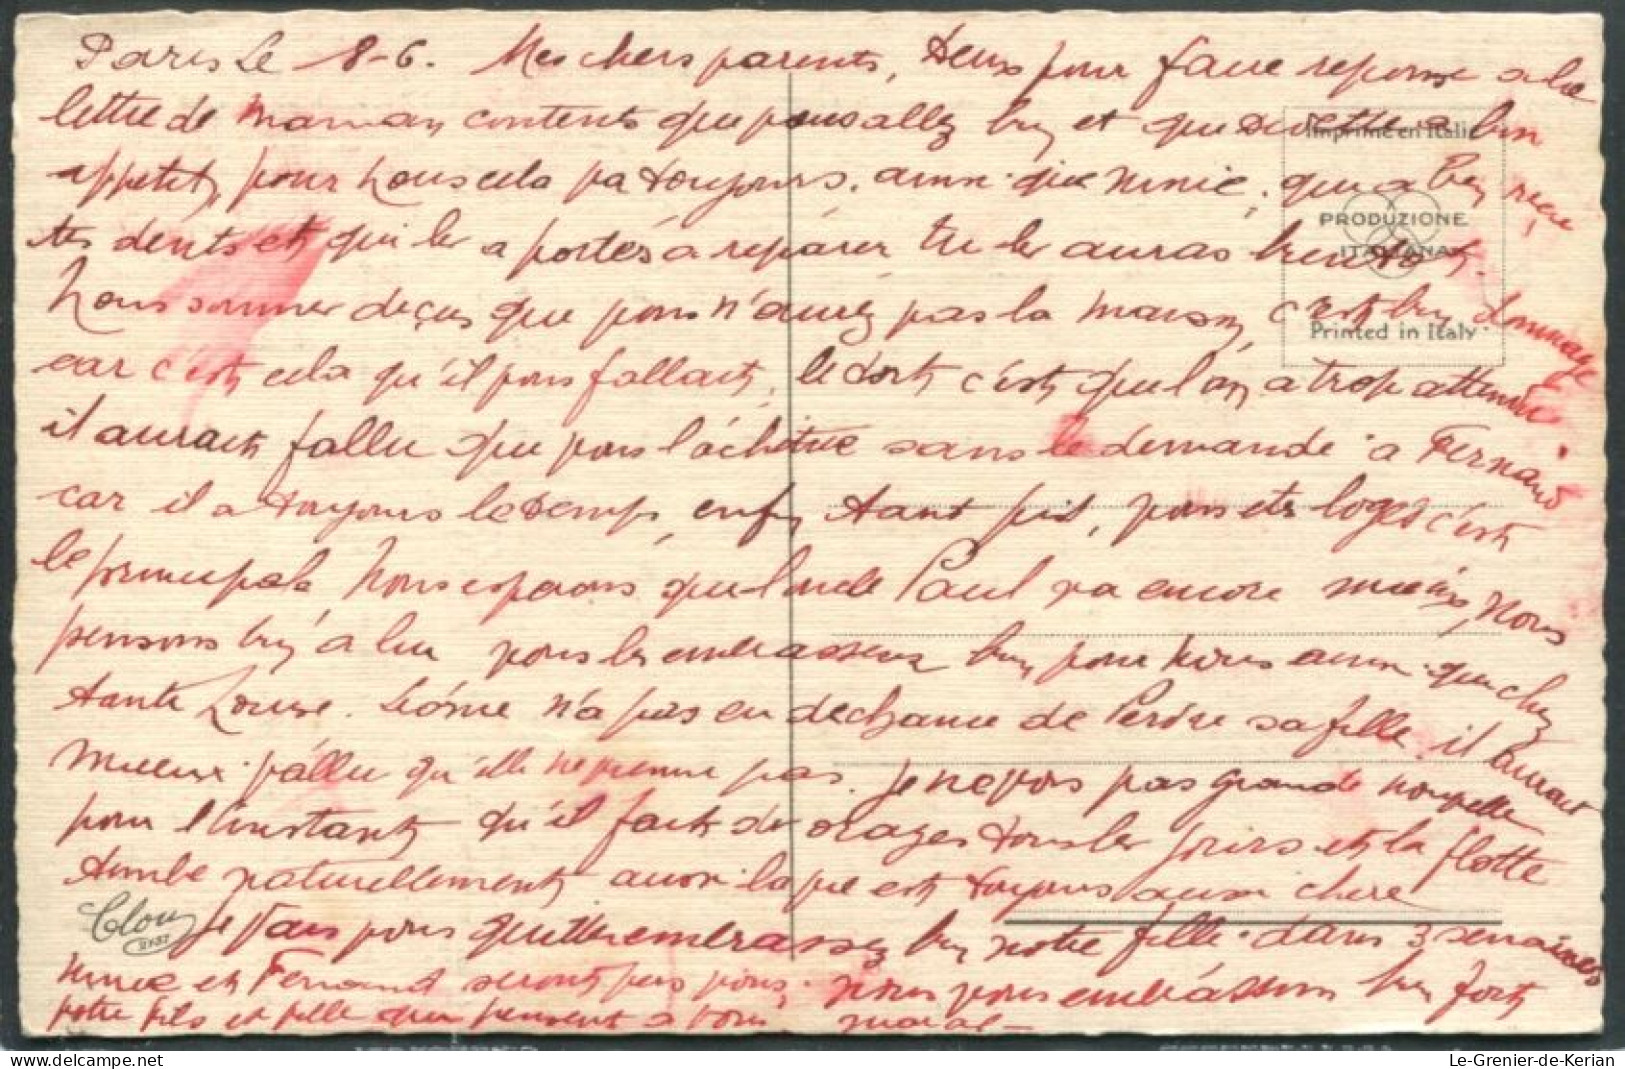 Paris le 8-6. Mes chers parents, deux pour faire reponse a la
lettre de Maman contents que vous allez bien et que Suzette a bon
appetit, pour nous cela va toujours. ainsi que Ninie, que a bien reçu
tes dents et qui les a portés a reparer tu les auras bientot.
Nous sommes deçus que vous n'aurez pas la maison, c'est bien dommage
car c'est cela qu'il vous fallait, le tort c'est que l'on a trop attendu
il aurait fallu que vous l'achétiez sans le demande a Fernand
car il a toujours le temps, enfin tant pis, vous ets loges c'est
le principale Nous esperons que l'oncle Paul va encore mieux, nous
pensons bien a lui vous les embrasserez bien pour nous ainsi que chez
tante Louise. Léone n'a pas eu de chance de Perdre sa fille, il aurait
mieux vallu qu'elle ne vienne pas. je ne vois pas grande nouvelle
pour l'instant qu'il fait des orages tous les jours et la flotte
tombe naturellement aussi la vie est toujours aussi chere
Je vais vous quitter embrassez bien notre fille. dans 3 semaines
Ninie et Fernand seront pres vous, nous vous embrassons bien fort
votre fils et fille qui pensent a vous
Imprimé en Italie
PRODUZIONE
ITALIANA
Printed in Italy
Le-Grenier-de-Kerian